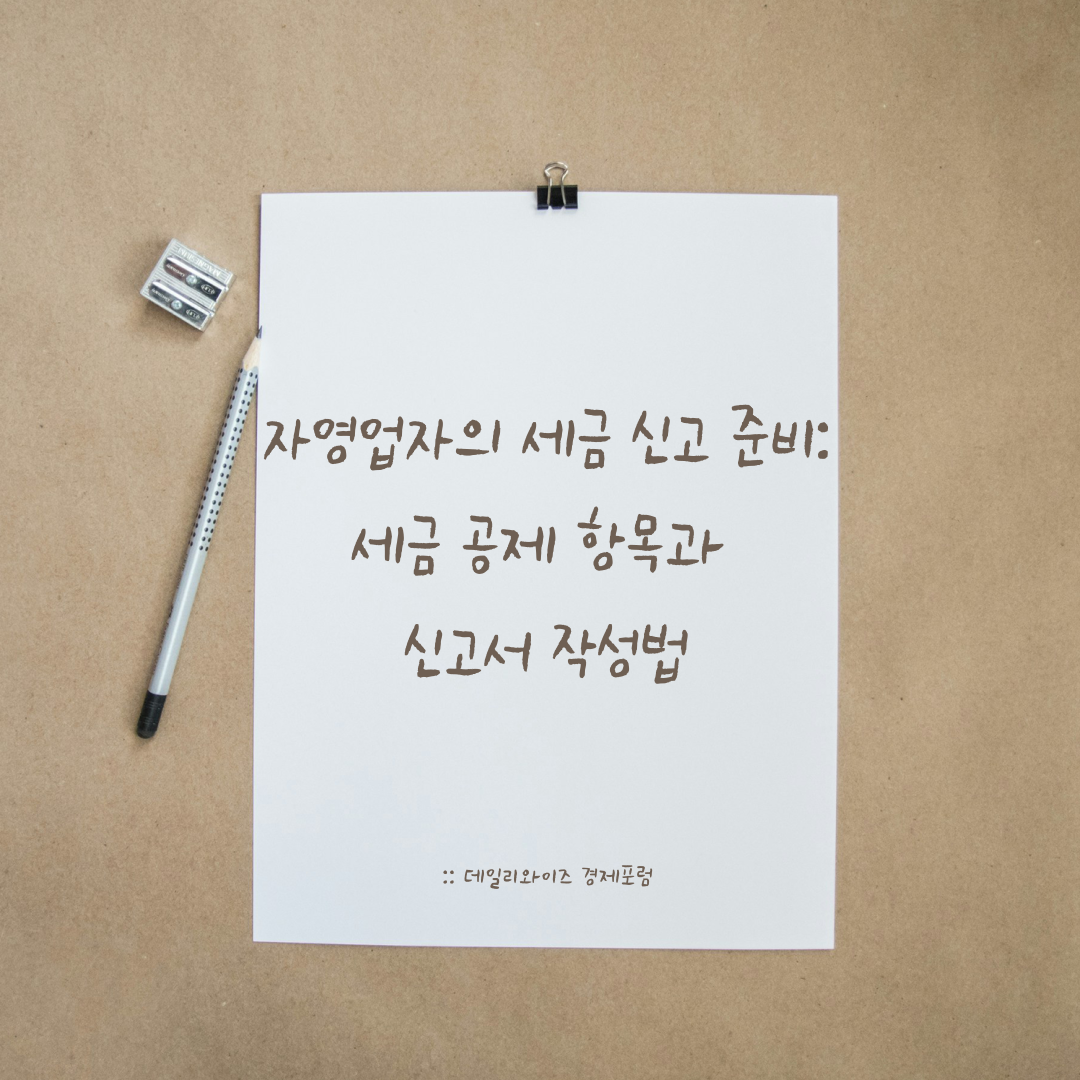 자영업자의 세금 신고 준비:
세금 공제 항목과
신고서 작성법
:: 데일리와이즈 경제포럼